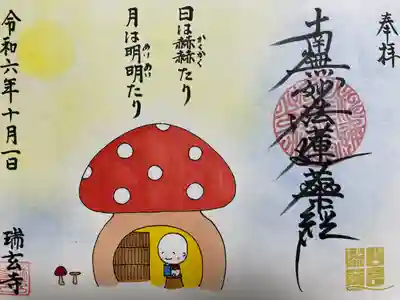 奉拝
南無妙法蓮華経
日は赫赫たり
かくかく
月は明明たり
めいめい
令和六年十月一日
瑞玄寺